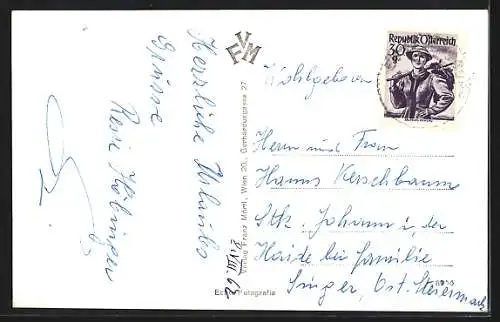 Herzliche Urlaubs
Grüsse
Resi Höbinger
2. VIII. 62
VFM
Verlag Franz Mörtl, Wien 20., Gerhardusgasse 27
Echte Fotografie
Republik Österreich
30
g
Wohlgeboren
Herrn und Frau
Hanns Kerschbaum
Stk. Johann i. der
Haide bei Familie
Singer, Ost. Steiermark